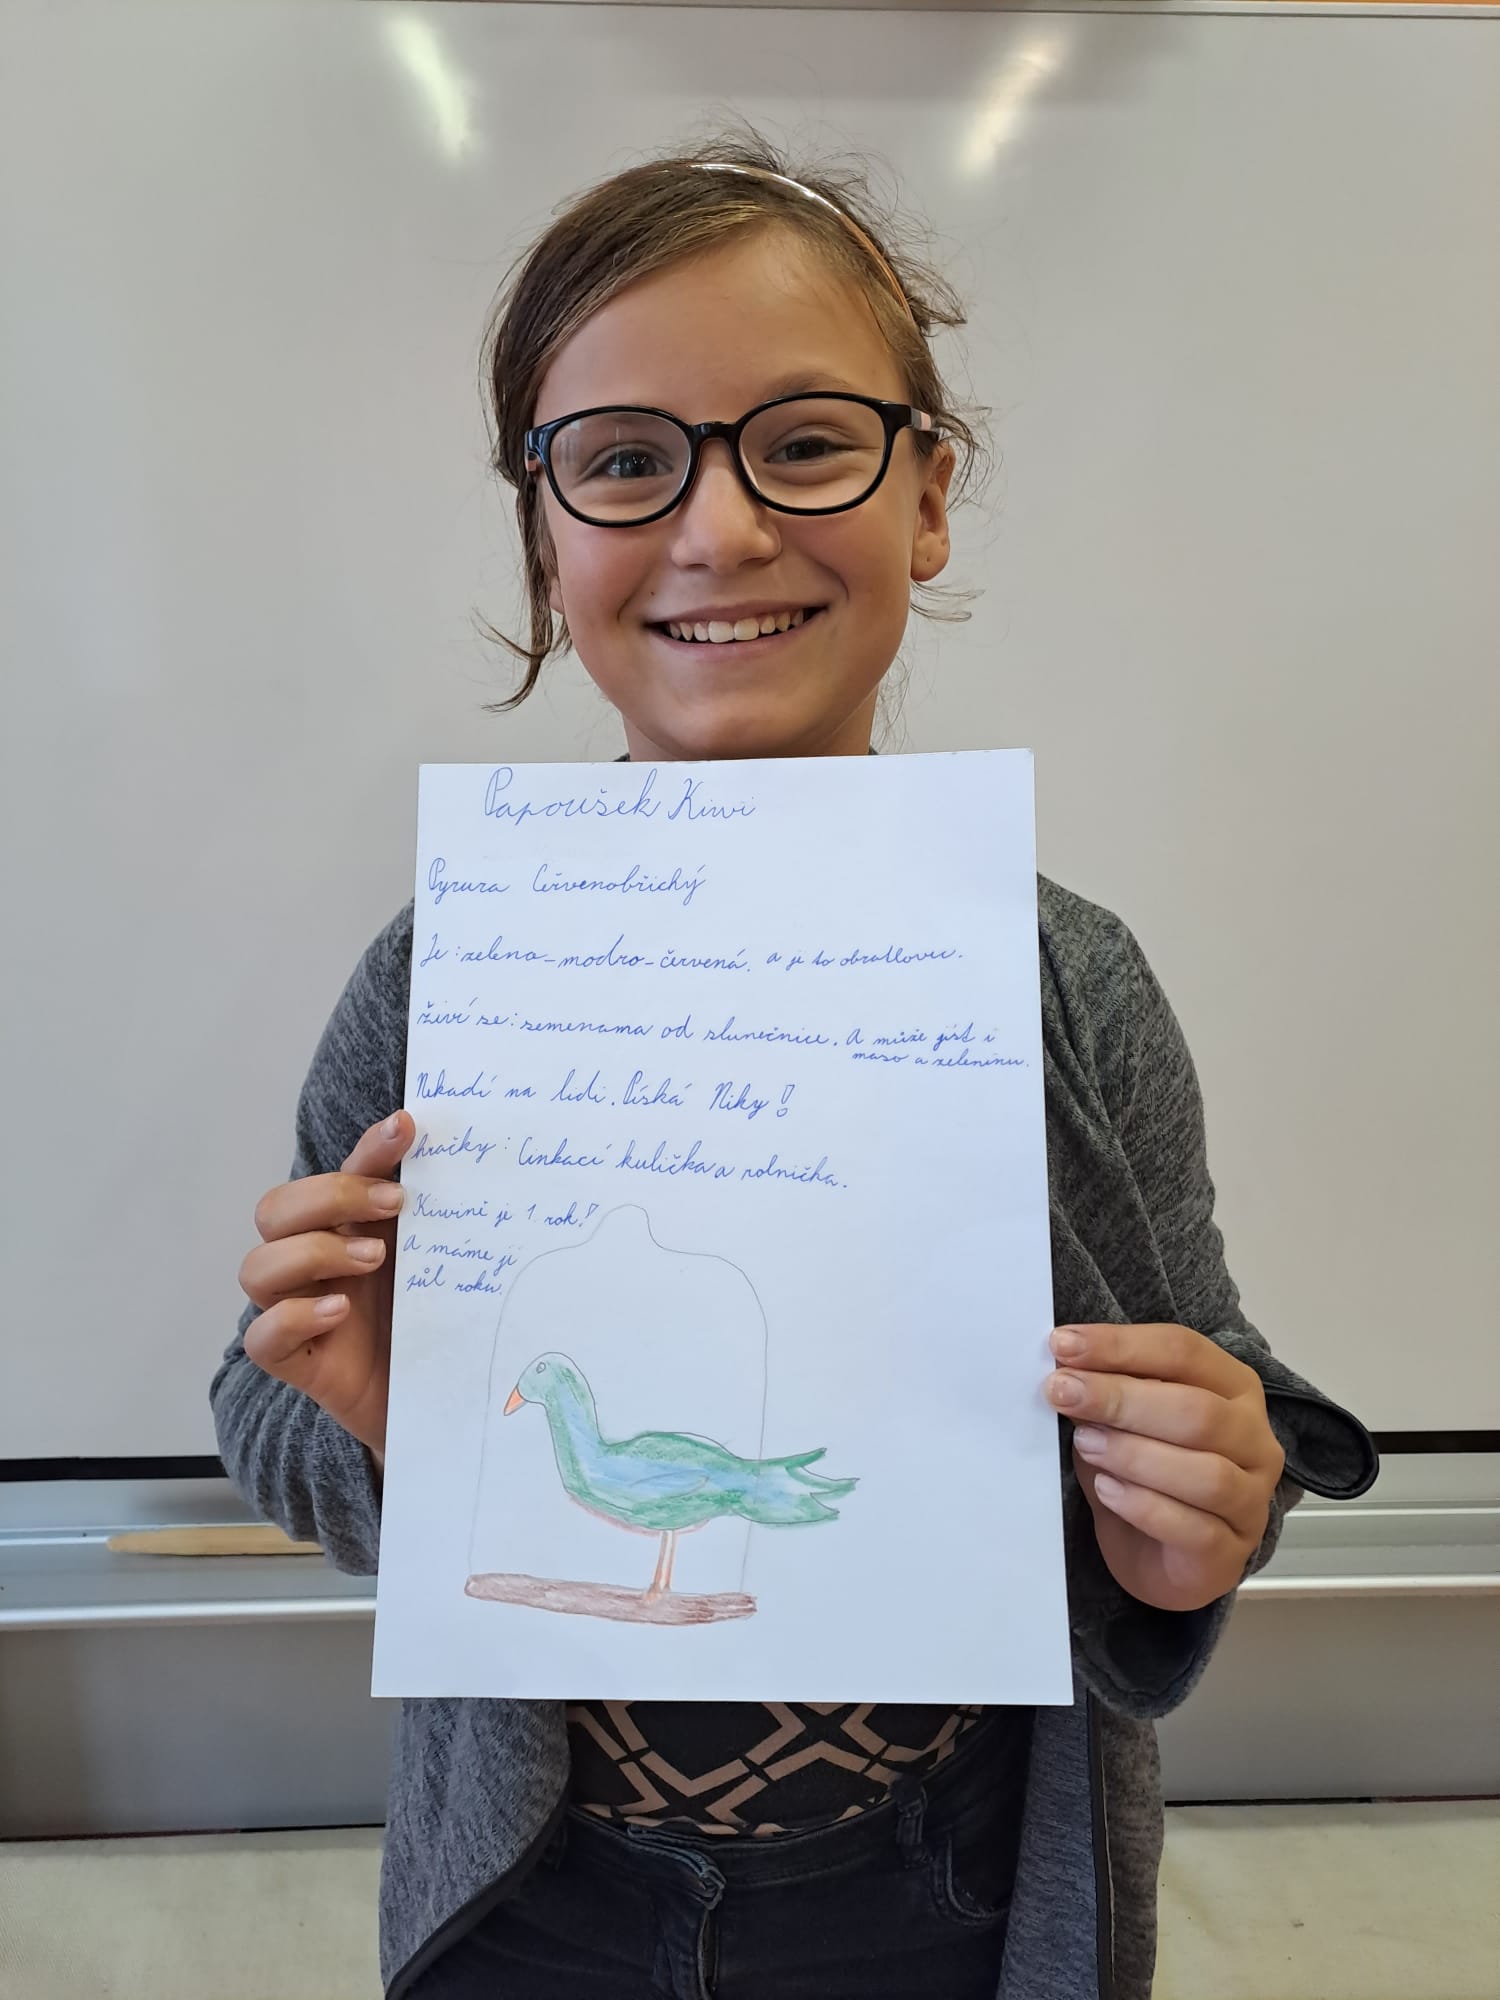 Papoušek Kiwi
Pyrura Červenobřichý
Je: zeleno-modro-červená. a je to obratlovec.
živí se: semenama od slunečnice. A může jíst i
maso a zeleninu.
Nekadí na lidi. Píská Niky!
hračky: Cinkací kulička a rolnička.
Kiwině je 1 rok!
A máme ji
půl roku.